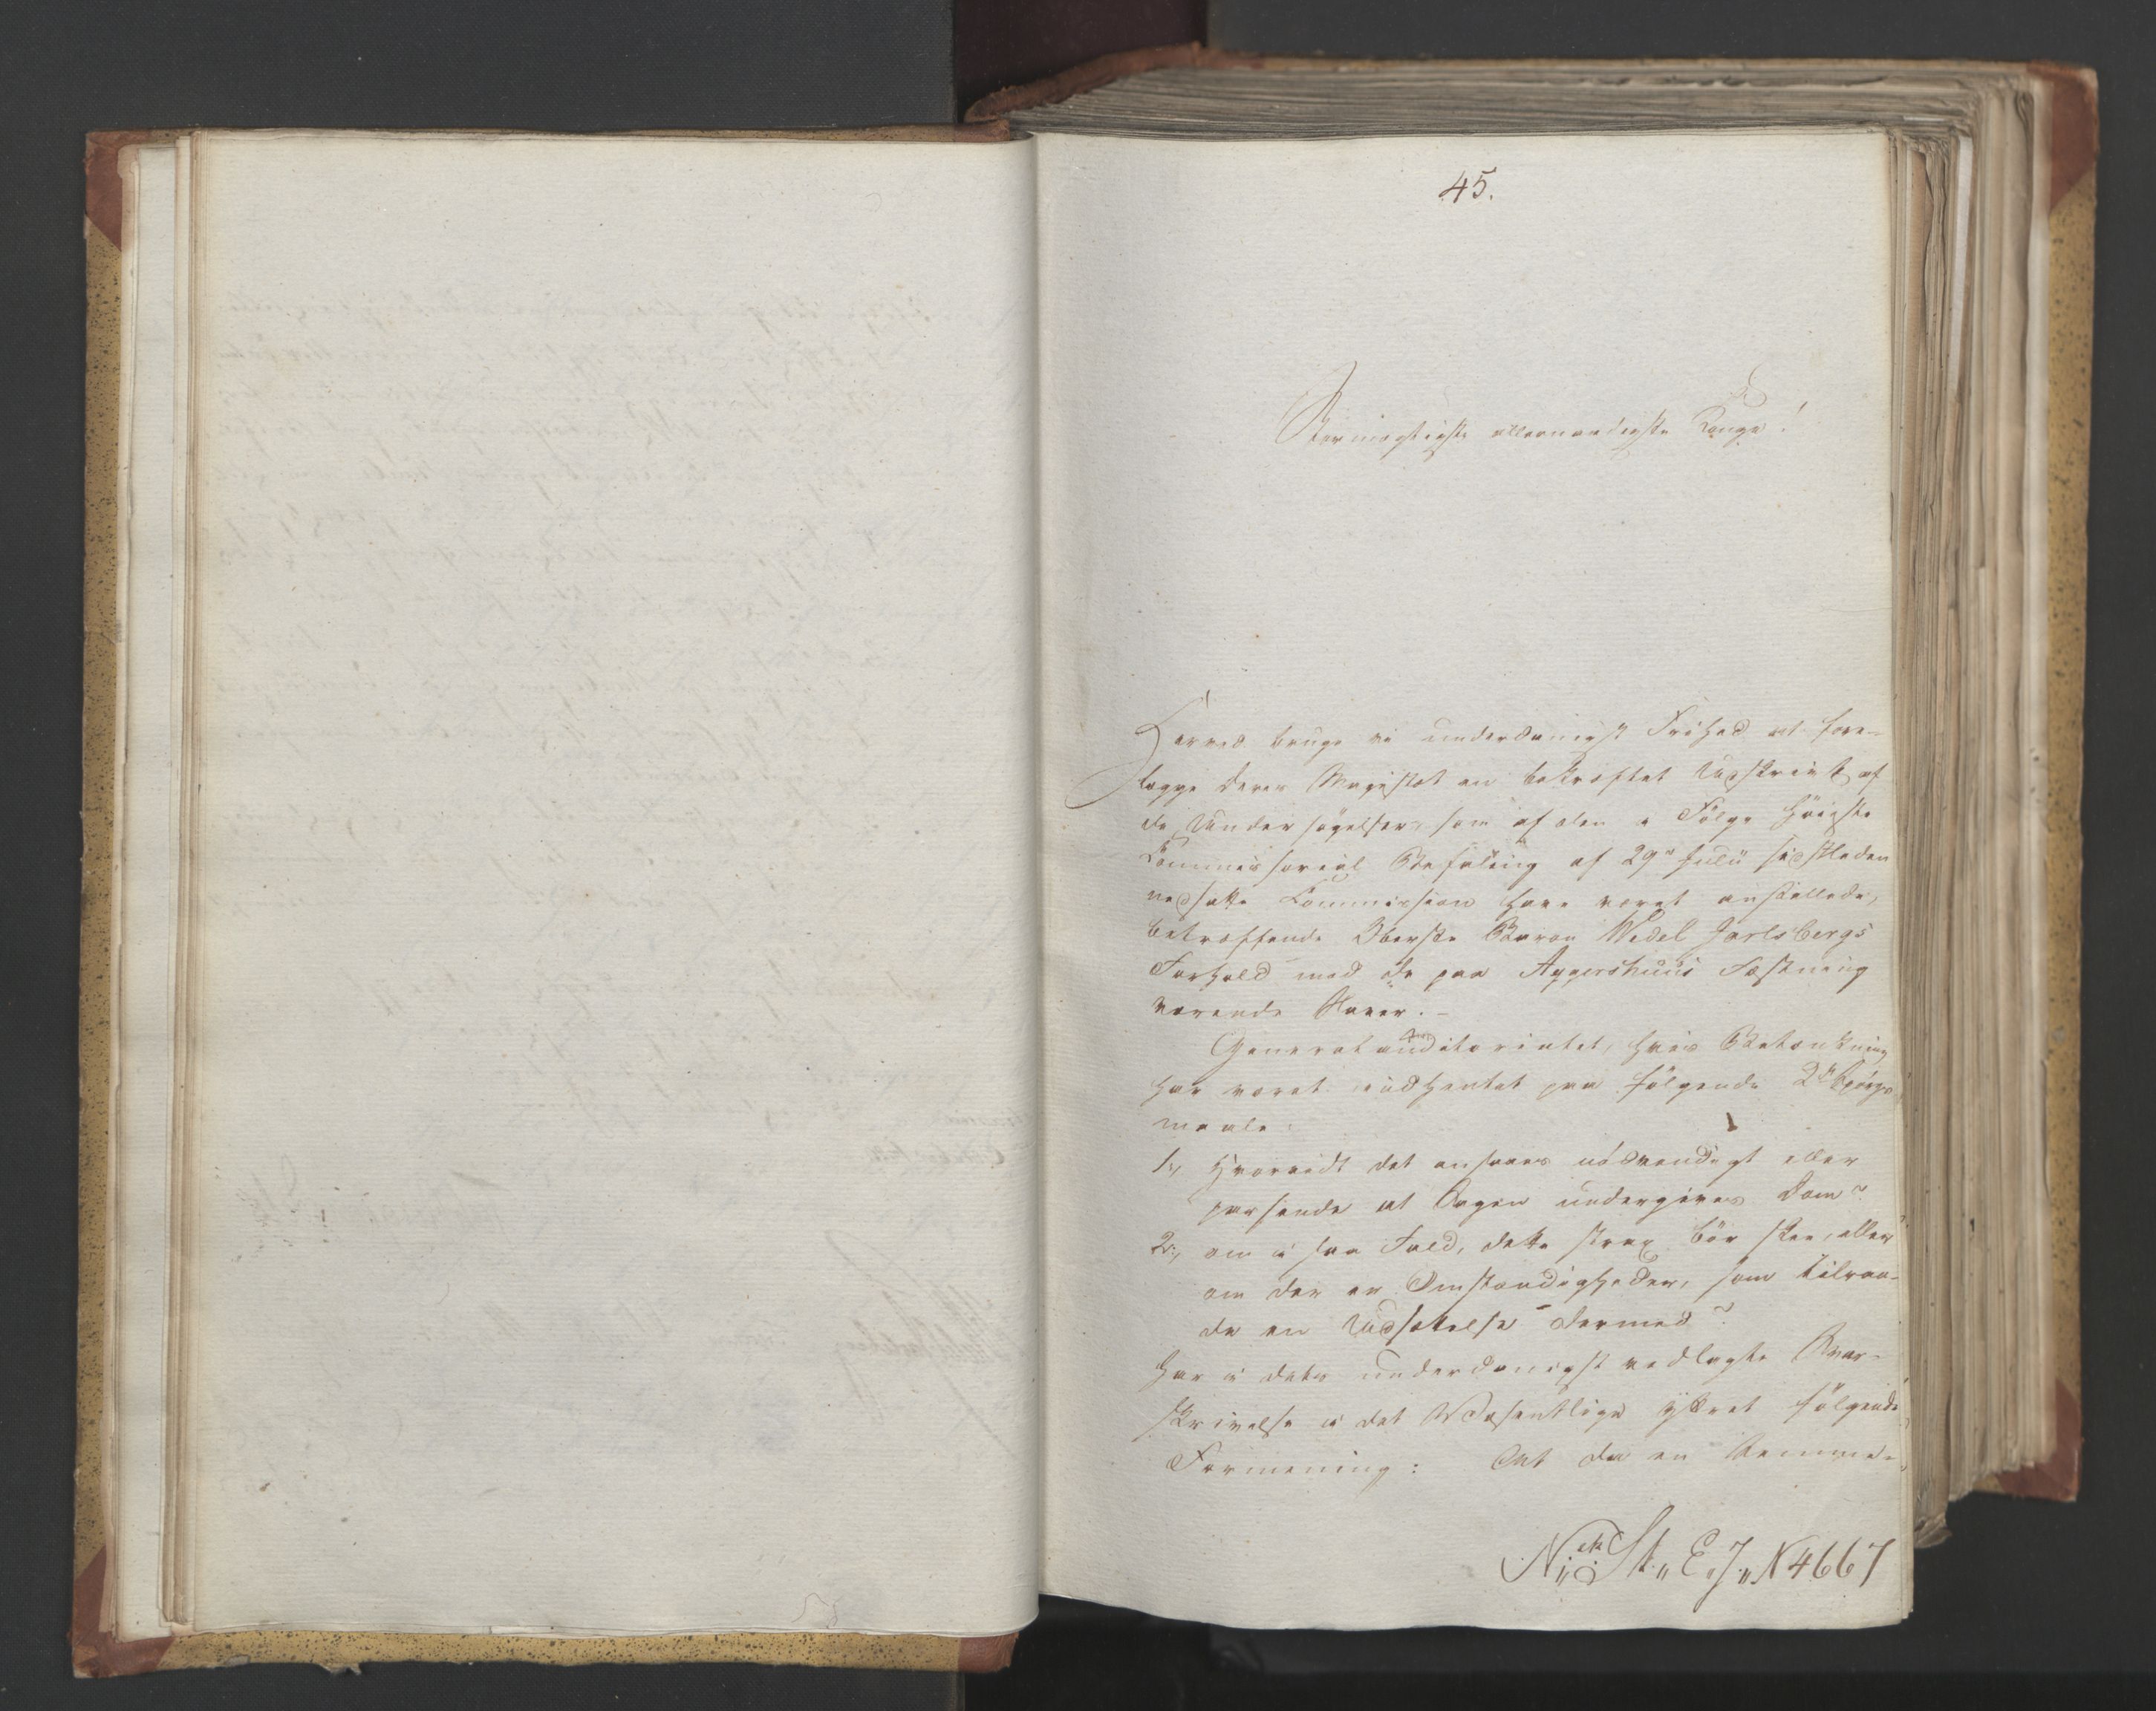 45.
Stormægtigste allernaadigste Konge!
Herved bruge vi underdanigst Frihed at fore-
lægge Deres Majestæt en bekræftet Udskrivt af
de Undersögelser, som af den i Fölge Höieste
Commissorial Befaling af 29de Julii sidstleden
nedsatte Commission have været anstillede,
betræffende Oberste Baron Wedel Jarlsbergs
Forhold mod de paa Aggershuus Fæstning
værende Slaver. -
Generalauditoriatet, hvis Betænkning
har været indhentet paa fölgende 2de Spörgs-
maale:
1., Hvorvidt det ansees nödvendigt eller
passende at Sagen undergives Dom?
2., om i saa Fald, dette strax bör skee, eller
om der er Omstændigheder, som tilraa-
de en Udsættelse dermed?
har i dets underdanigst vedlagte Svar-
skrivelse i det Væsentlige yttret fölgende
Formening: At da en
St. E. J. N 4667